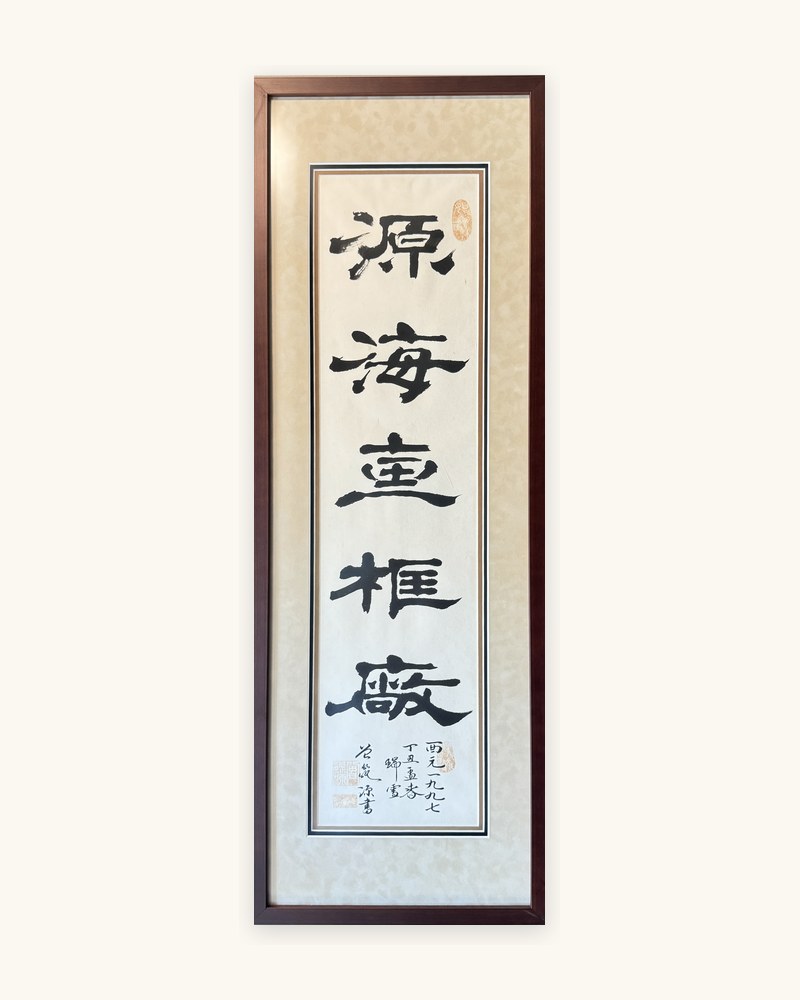 源海畫框廠
西元一九九七
丁丑孟春
瑞雪
源書